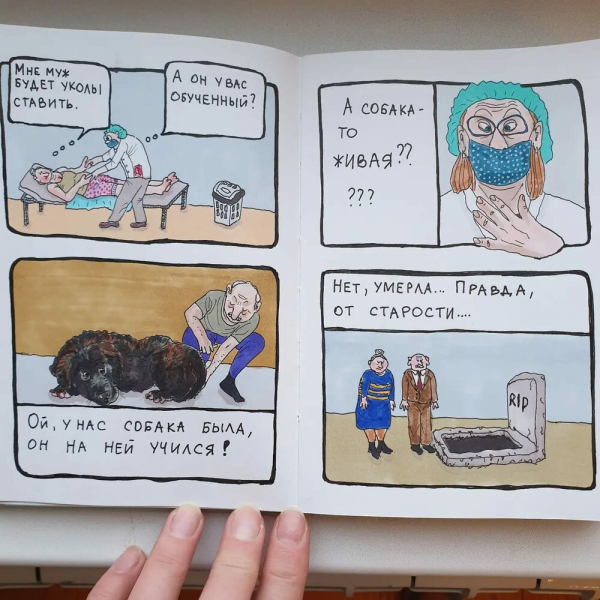 Мне муж
будет уколы
ставить.
А он у вас
обученный?
Ой, у нас собака была,
он на ней учился!
А собака-
то
живая??
???
Нет, умерла... Правда,
от старости....
RIP